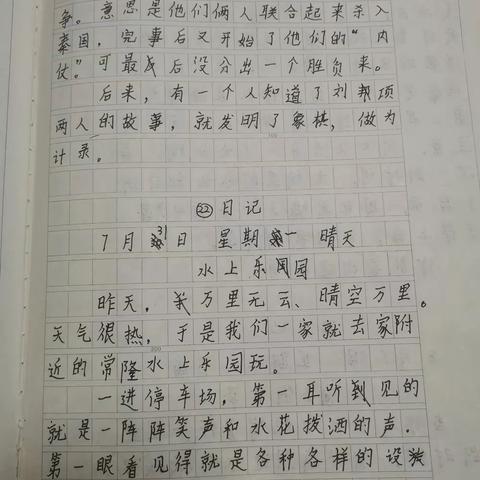 争。意思是他们俩人联合起来杀入
秦国，完事后又开始了他们的“内
仗”。可最后没分出一个胜负来。
后来，有一个人知道了刘邦项
两人的故事，就发明了象棋，做为
计录。
㉒日记
7月31日 星期一 晴天
水上乐园
昨天，万里无云、晴空万里。
天气很热，于是我们一家就去家附
近的常隆水上乐园玩。
一进停车场，第一耳听到见的
就是一阵阵笑声和水花拨洒的声.
第一眼看见得就是各种各样的设装